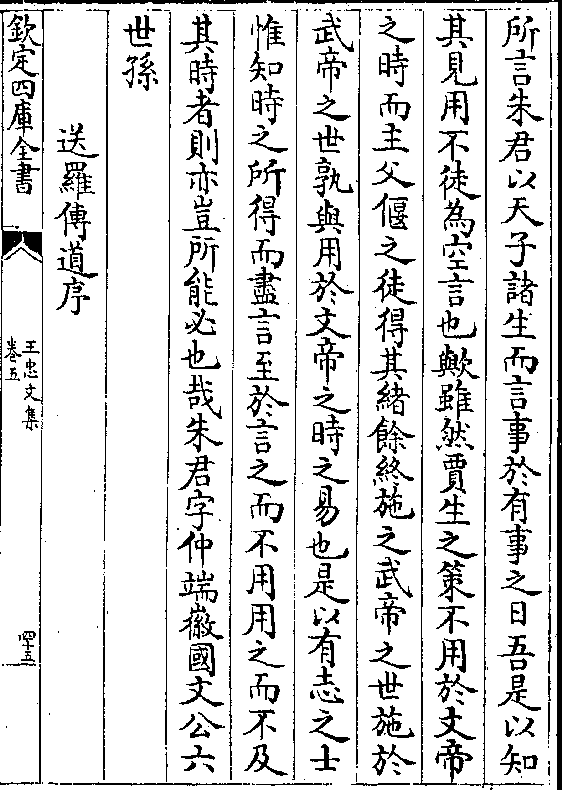 所言朱君以天子諸生而言事於有事之日吾是以知
其見用不徒為空言也歟雖然賈生之策不用於文帝
之時而主父偃之徒得其緒餘終施之武帝之世施於
武帝之世孰與用於文帝之時之易也是以有志之士
惟知時之所得而盡言至於言之而不用用之而不及
其時者則亦豈所能必也哉朱君字仲端徽國文公六
世孫
送羅傳道序
欽定四庫全書
王忠文集
卷五
四十五